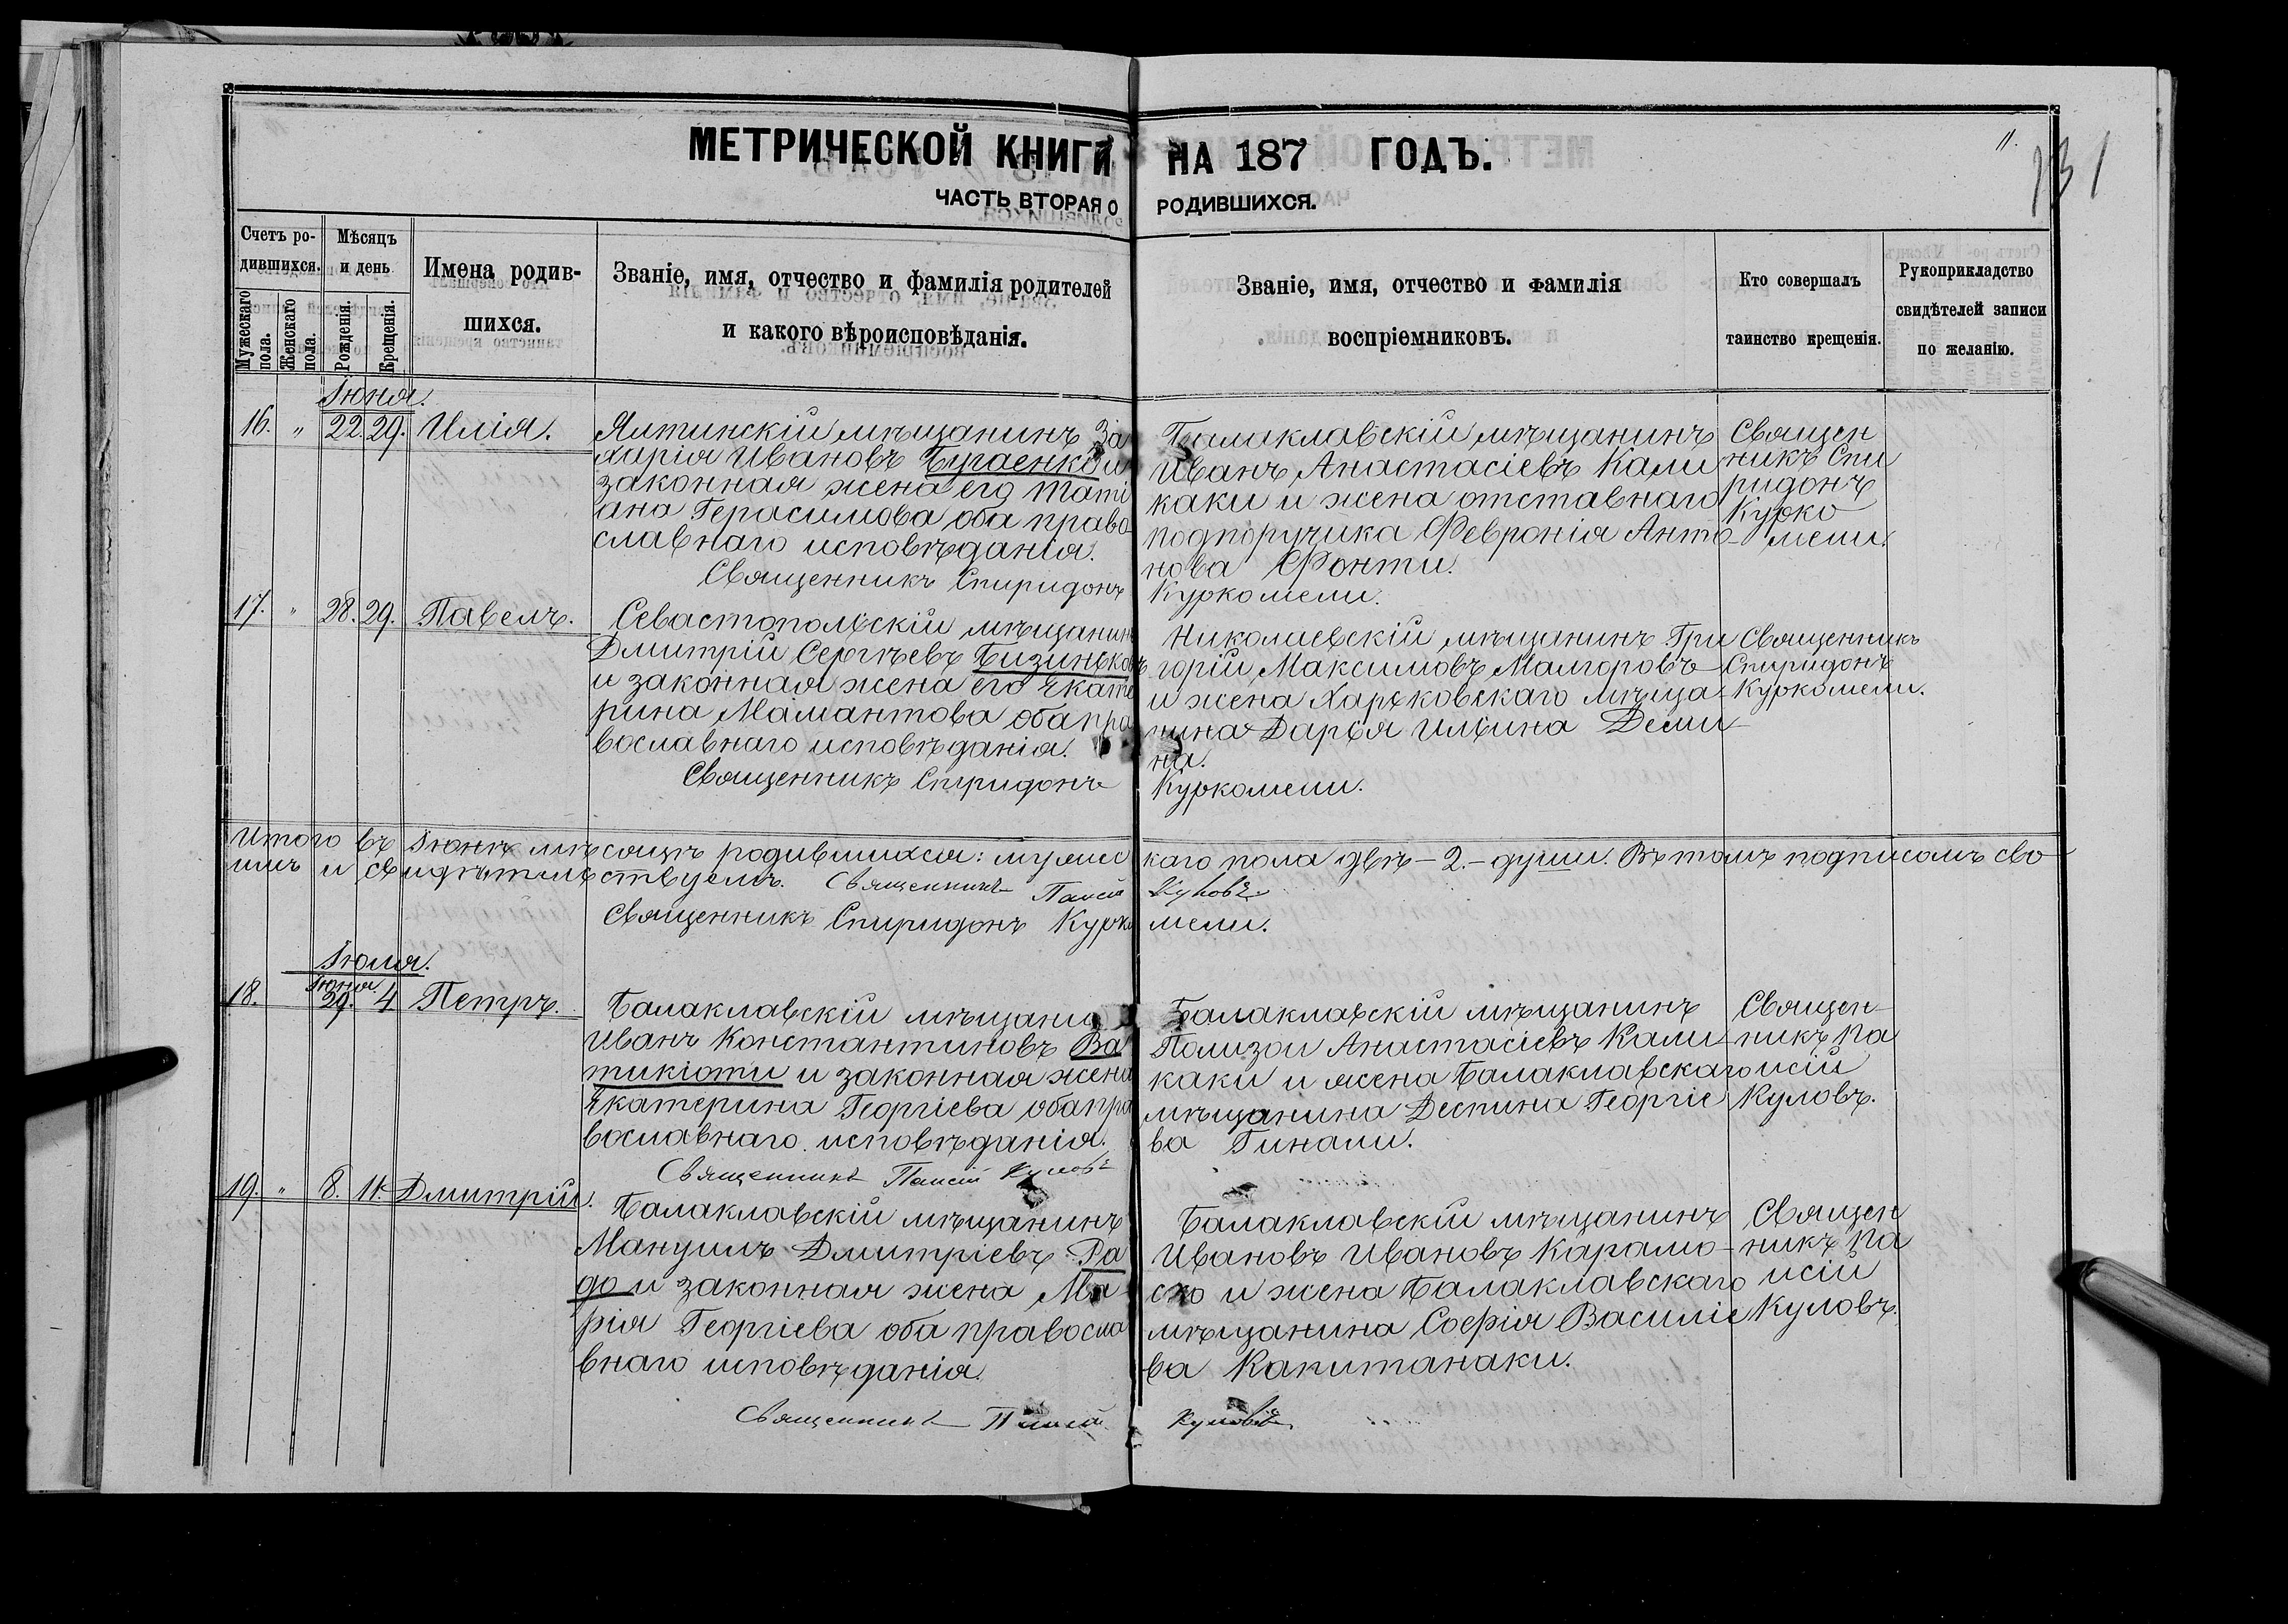 МЕТРИЧЕСКОЙ КНИГИ НА 187 ГОДЪ.
11.
131
ЧАСТЬ ВТОРАЯ О РОДИВШИХСЯ.
Счетъ ро-
дившихся.
Мужескаго
пола.
Женскаго
пола.
Мѣсяцъ
и день
Рожденія.
Крещенія.
Имена родив-
шихся.
Званіе, имя, отчество и фамилія родителей
и какого вѣроисповѣданія.
Званіе, имя, отчество и фамилія
воспріемниковъ.
Кто совершалъ
таинство крещенія.
Рукоприкладство
свидѣтелей записи
по желанію.
Іюня.
16. " 22. 29. Илія.
Ялтинскій мѣщанинъ За
харія Ивановъ Бугаенко и
законная жена его Таті
ана Герасимова оба право
славнаго исповѣданія.
Священникъ Спиридонъ
Балаклавскій мѣщанинъ
Иванъ Анастасіевъ Кали
каки и жена отставнаго
подпоручика Февронія Анто-
нова Фонти.
Куркомели.
Священ
никъ Спи
ридонъ
Курко
мели.
17. " 28. 29. Павелъ.
Севастопольскій мѣщанинъ
Дмитрій Сергѣевъ Бизиньковъ
и законная жена его Екате
рина Мамантова оба пра
вославнаго исповѣданія.
Священникъ Спиридонъ
Николаевскій мѣщанинъ Гри
горій Максимовъ Малгоровъ
и жена Харьковскаго мѣща
нина Дарья Ильина Деми
на.
Куркомели.
Священникъ
Спиридонъ
Куркомели.
Итого въ Іюнѣ мѣсяцѣ родившихся: мужес каго пола двѣ – 2. – души. Въ томъ подписомъ сво
имъ и свидѣтельствуемъ. Священникъ Паисій Куловъ
Священникъ Спиридонъ Курко мели.
Іюля.
Іюня
18. 29. 4 Петръ.
Балаклавскій мѣщани
Иванъ Константиновъ Ва
тикіоти и законная жена
Екатерина Георгіева оба пра
вославнаго исповѣданія.
Священникъ Паисій Куловъ
Балаклавскій мѣщанинъ
Полизои Анастасіевъ Кали
каки и жена Балаклавскаго
мѣщанина Деспина Георгіе
ва Гинали.
Священ-
никъ Па
исій
Куловъ.
19. " 8. 11. Дмитрій.
Балаклавскій мѣщанинъ
Мануилъ Дмитріевъ Ра
до и законная жена Ма
рія Георгіева оба правосла
внаго исповѣданія.
Священникъ Паисій
Балаклавскій мѣщанинъ
Ивановъ Ивановъ Карамо-
ско и жена Балаклавскаго
мѣщанина Софія Василіе
ва Капитанаки.
Куловъ
Священ
никъ Па
исій
Куловъ.